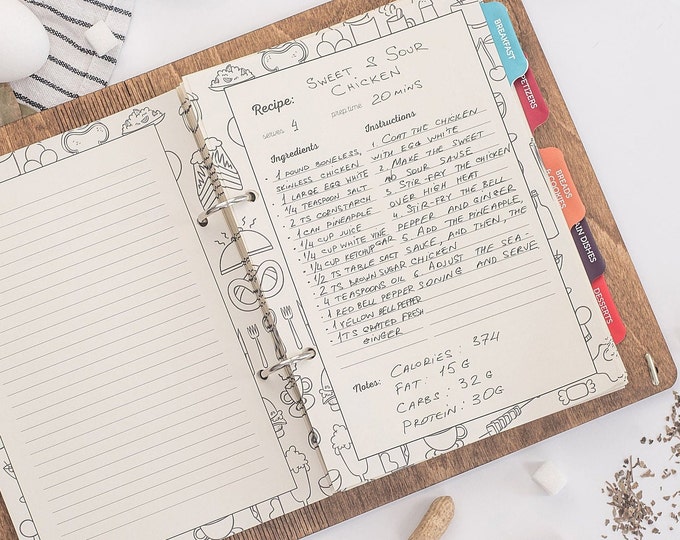 Recipe: SWEET & SOUR
CHICKEN
serves 4 prep time 20 MINS
Ingredients
• 1 POUND BONELESS,
SKINLESS CHICKEN
• 1 LARGE EGG WHITE
• 1/4 TEASPOON SALT
• 2 TS CORNSTARCH
• 1 CAN PINEAPPLE
• 1/4 CUP JUICE
• 1/4 CUP WHITE VINEGAR
• 1/4 CUP KETCHUP
• 1/2 TS TABLE SALT
• 2 TS BROWN SUGAR
• 4 TEASPOONS OIL
• 1 RED BELL PEPPER
• 1 YELLOW BELL PEPPER
• 1 TS GRATED FRESH
GINGER
Instructions
1. COAT THE CHICKEN
WITH EGG WHITE
2. MAKE THE SWEET
SOUR SAUSE
3. STIR-FRY THE CHICKEN
OVER HIGH HEAT
4. STIR-FRY THE BELL
PEPPER AND GINGER
5. ADD THE PINEAPPLE,
SAUCE, AND THEN, THE
CHICKEN
6 ADJUST THE SEA-
SONING AND SERVE
Notes: CALORIES: 374
FAT: 15 G
CARBS: 32 G
PROTEIN: 30G
BREAKFAST
BREADS
DESSERTS